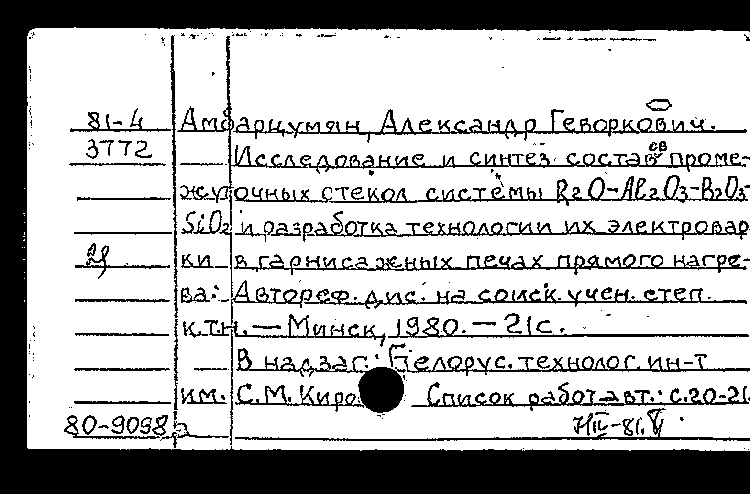 81-4 Амбарцумян, Александр Геворкович.
3772 Исследование и синтез состав св проме-
жуточных стекол системы R2O-Al2O3-B2O3-
SiO2 и разработка технологии их электровар
ки в гарнисажных печах прямого нагре-
ва: Автореф. дис. на соиск. учен. степ.
к.т.н. — Минск, 1980. — 21с.
В надзаг.: Белорус. технолог. ин-т
им. С.М. Киро Список работ авт.: с.20-21.
80-9098